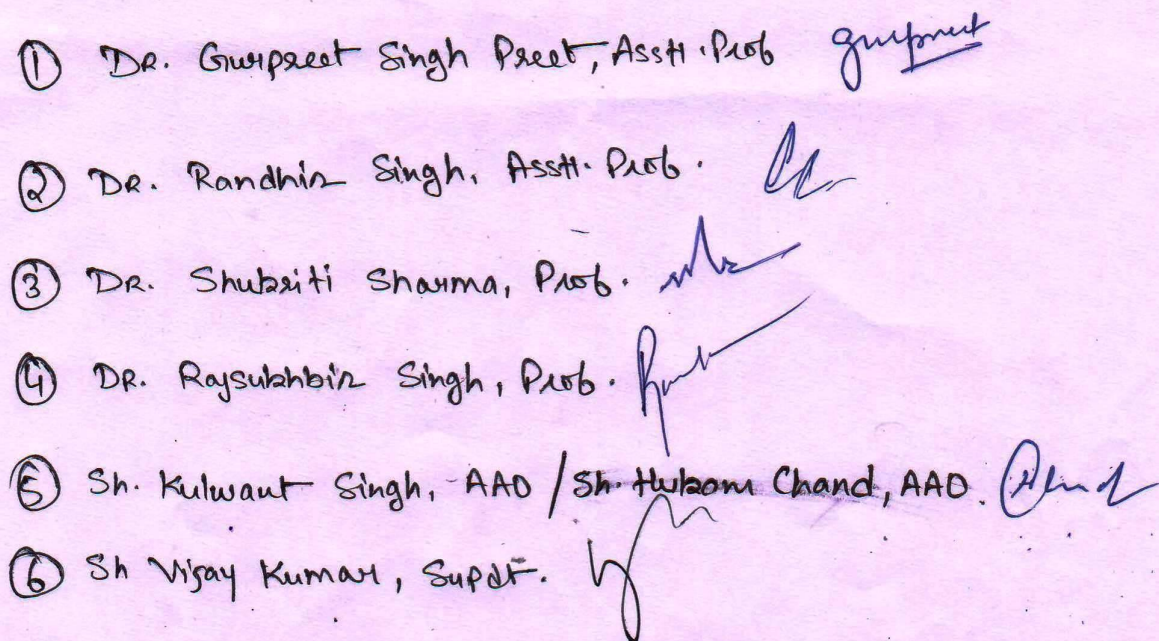 ① DR. Gurpreet Singh Preet, Asstt. Prof gurpreet
② DR. Randhir Singh, Asstt. Prof.
③ DR. Shukriti Sharma, Prof.
④ DR. Rajsukhbir Singh, Prof.
⑤ Sh. Kulwant Singh, AAO / Sh. Hukam Chand, AAO.
⑥ Sh Vijay Kumar, Supdt.